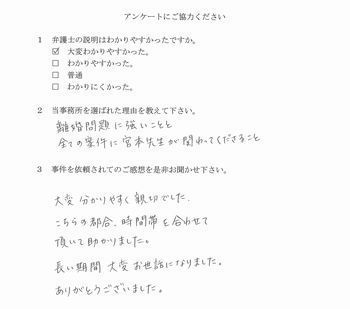 アンケートにご協力ください
1 弁護士の説明はわかりやすかったですか。
☑ 大変わかりやすかった。
☐ わかりやすかった。
☐ 普通
☐ わかりにくかった。
2 当事務所を選ばれた理由を教えて下さい。
離婚問題に強いことと
全ての案件に宮本先生が関わってくださること
3 事件を依頼されてのご感想を是非お聞かせ下さい。
大変 分かりやすく 親切でした.
こちらの都合、時間帯を合わせて
頂いて助かりました。
長い期間 大変 お世話になりました。
ありがとうございました。